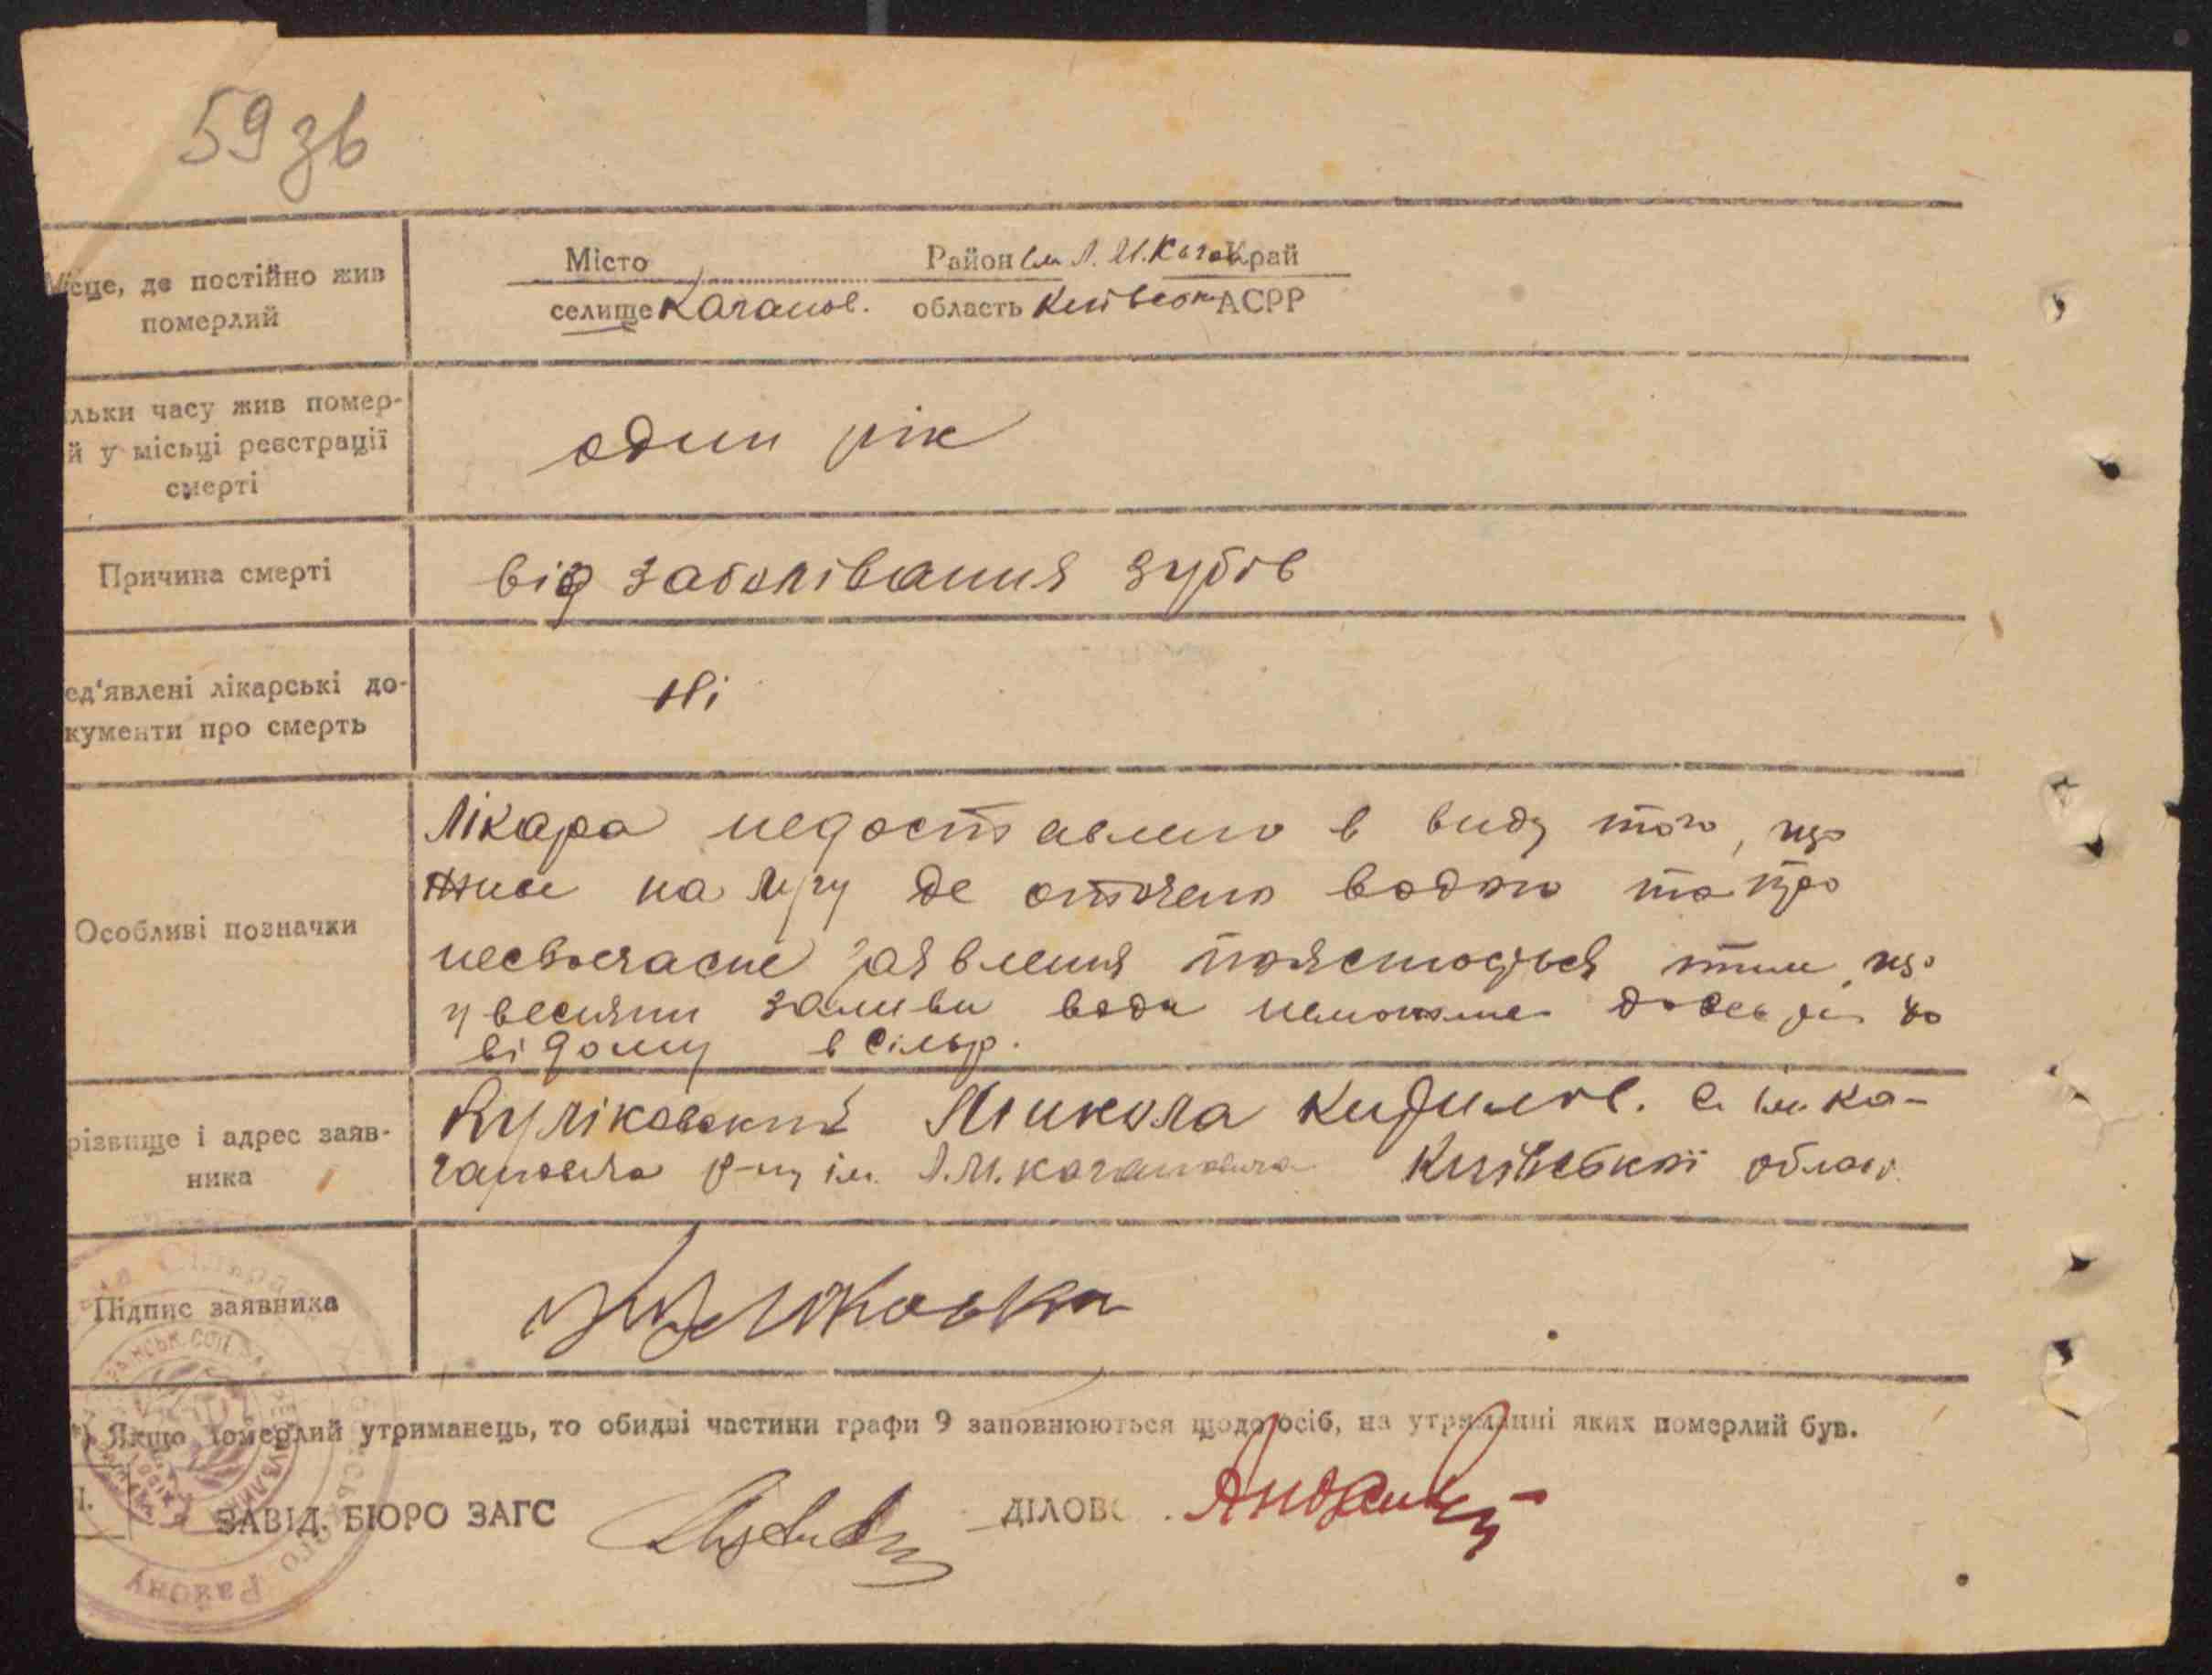 59 зв
Місце, де постійно жив
померлий
Місто Район ім Л. М. Кага Край
селище Каганов. область Київськ АСРР
льки часу жив помер-
й у місьці реєстрації
смерті
один рік
Причина смерті
від заболівання зубів
ед'явлені лікарські до-
кументи про смерть
Ні
Особливі позначки
Лікара недоставлено в виду того, що
живе на лугу де оточено водою та про
несвоєчасне заявлення пояснюється тим що
у весняни заливи води неможна довести до
відому в сільр.
різвище і адрес заяв-
ника
Куліковский Микола Кирилов. с. ім. Ка-
гановича р-ну ім. Л.М. Кагановича Київської област.
Підпис заявника
Якщо померлий утриманець, то обидві частини графи 9 заповнюються щодо осіб, на утриманні яких померлий був.
ЗАВІД. БЮРО ЗАГС ДІЛОВ
Району